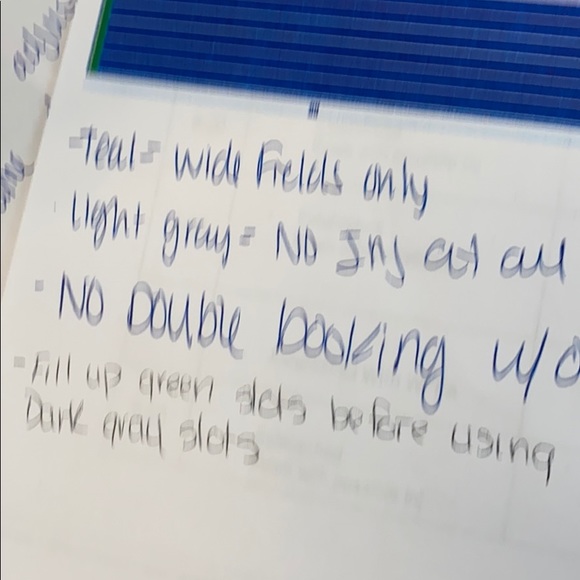 -teal= wide Fields only
light gray= NO Inj at all
· NO DOUBLE booking w/o
- Fill up green slots before using
Dark gray slots